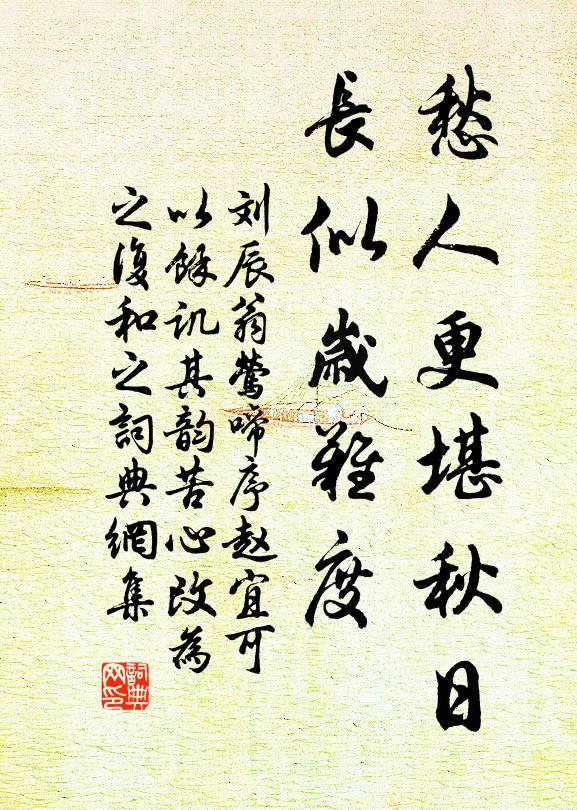 愁人更堪秋日
長似歲難度
刘辰翁鶯啼序赵宜可
以餘訊其韵苦心改為
之復和之詞典網集
詞典
网印